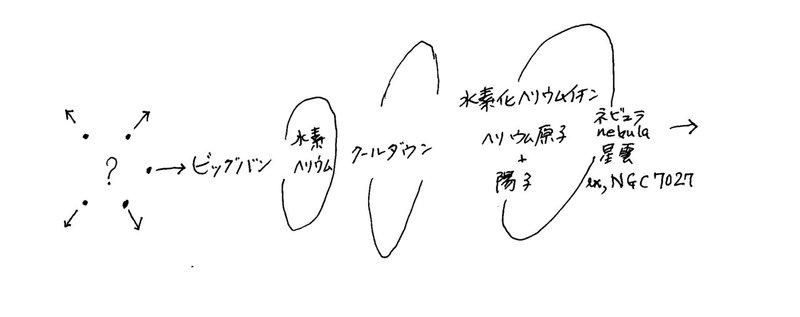 ?
→ビッグバン
水素
ヘリウム
クールダウン
水素化ヘリウムイオン
ヘリウム原子
+
陽子
ネビュラ
nebula
星雲
ex, NGC7027
→